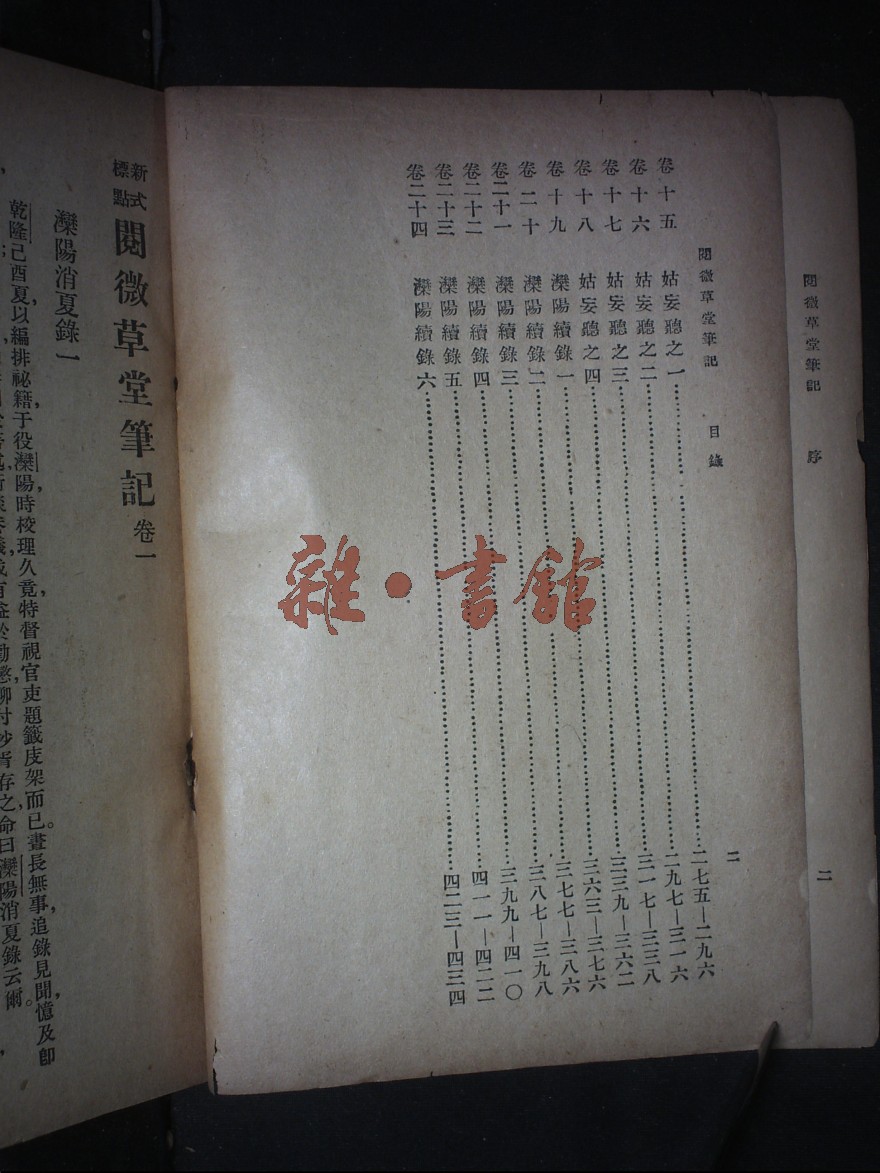 閱微草堂筆記 序 二
閱微草堂筆記 目錄 二
卷十五 姑妄聽之一 二七五—二九六
卷十六 姑妄聽之二 二九七—三一六
卷十七 姑妄聽之三 三一七—三三八
卷十八 姑妄聽之四 三三九—三六二
卷十九 灤陽續錄一 三六三—三七六
卷二十 灤陽續錄二 三七七—三八六
卷二十一 灤陽續錄三 三八七—三九八
卷二十二 灤陽續錄四 三九九—四一〇
卷二十三 灤陽續錄五 四一一—四二二
卷二十四 灤陽續錄六 四二三—四三四
雜·書館
新式標點 閱微草堂筆記 卷一
灤陽消夏錄一
乾隆己酉夏,以編排祕籍,于役灤陽,時校理久竟,特督視官吏題籤庋架而已。晝長無事,追錄見聞,憶及卽
存之,命曰灤陽消夏錄云爾。